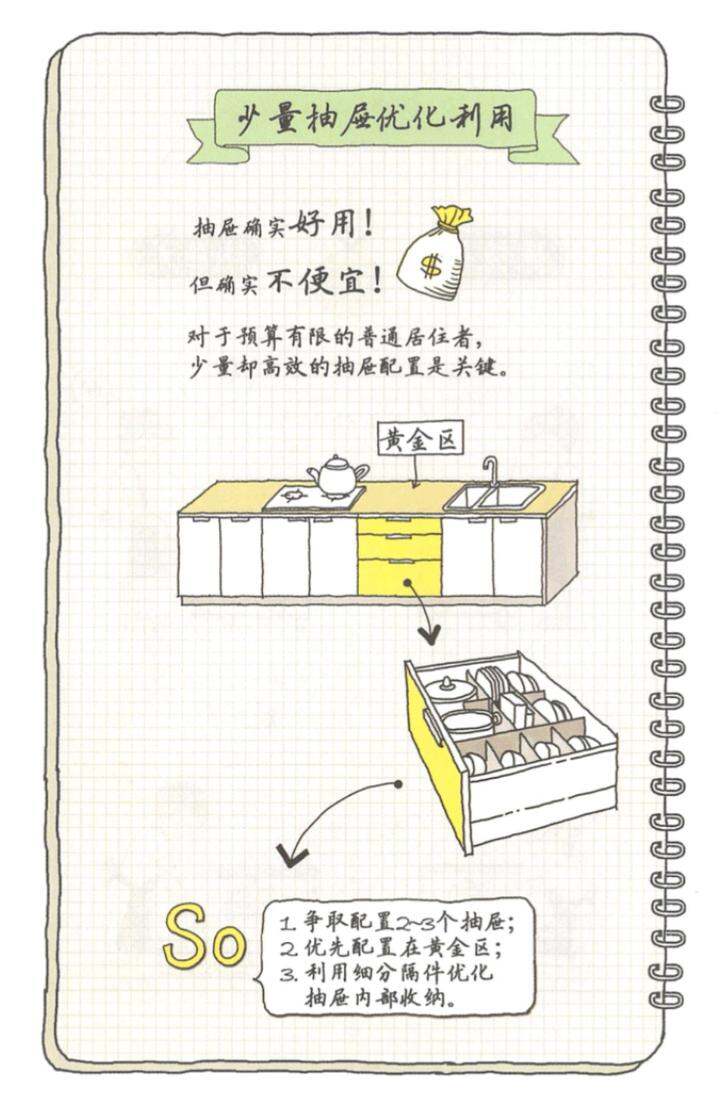 少量抽屉优化利用
抽屉确实好用！
但确实不便宜！
$
对于预算有限的普通居住者，
少量却高效的抽屉配置是关键。
黄金区
So
1. 争取配置2~3个抽屉；
2. 优先配置在黄金区；
3. 利用细分隔件优化
抽屉内部收纳。